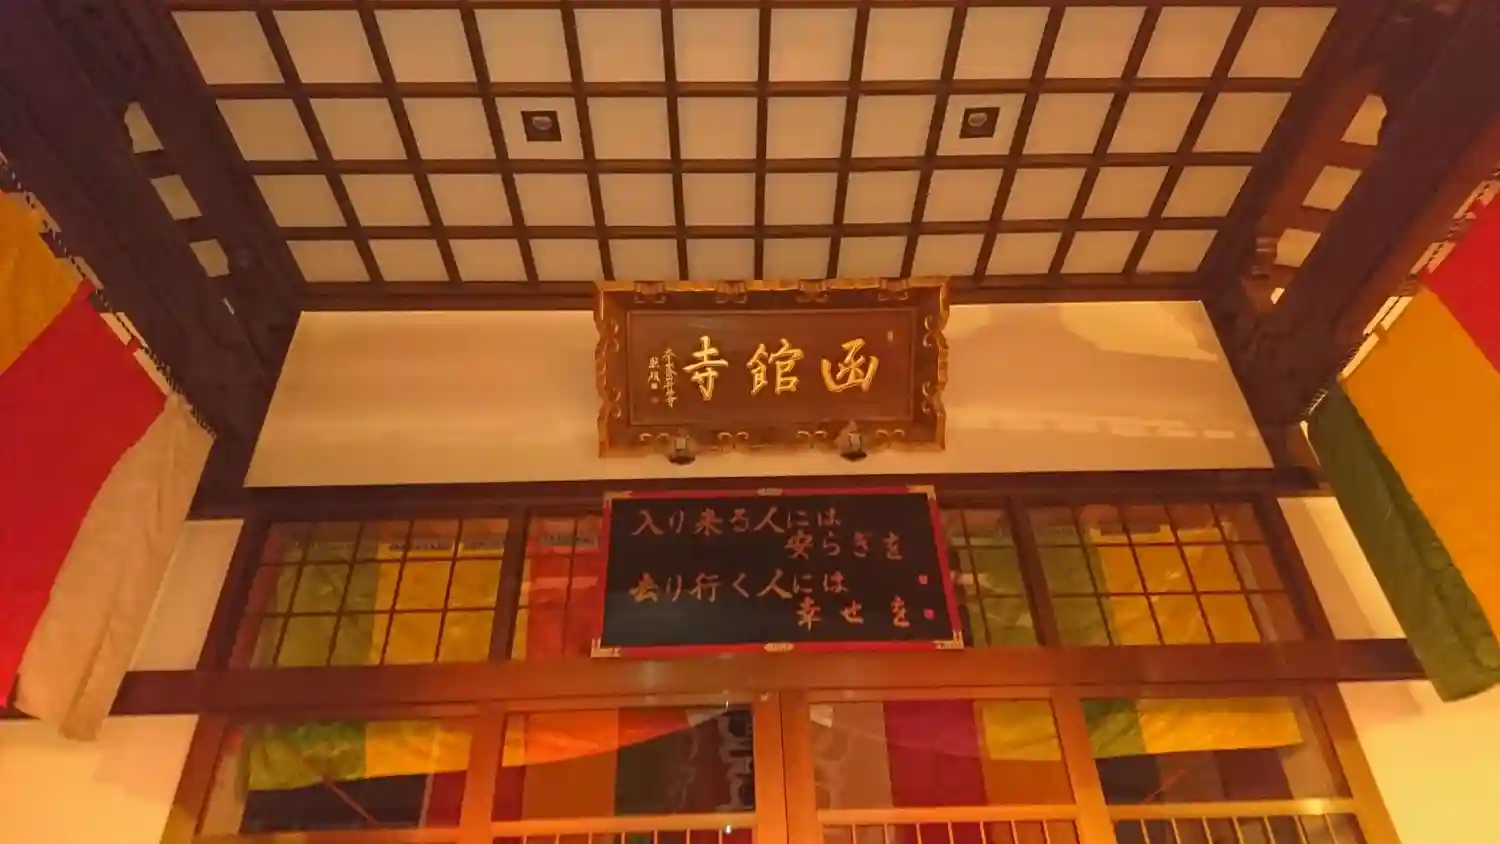 函館寺
入り来る人には
安らぎを
去り行く人には
幸せを